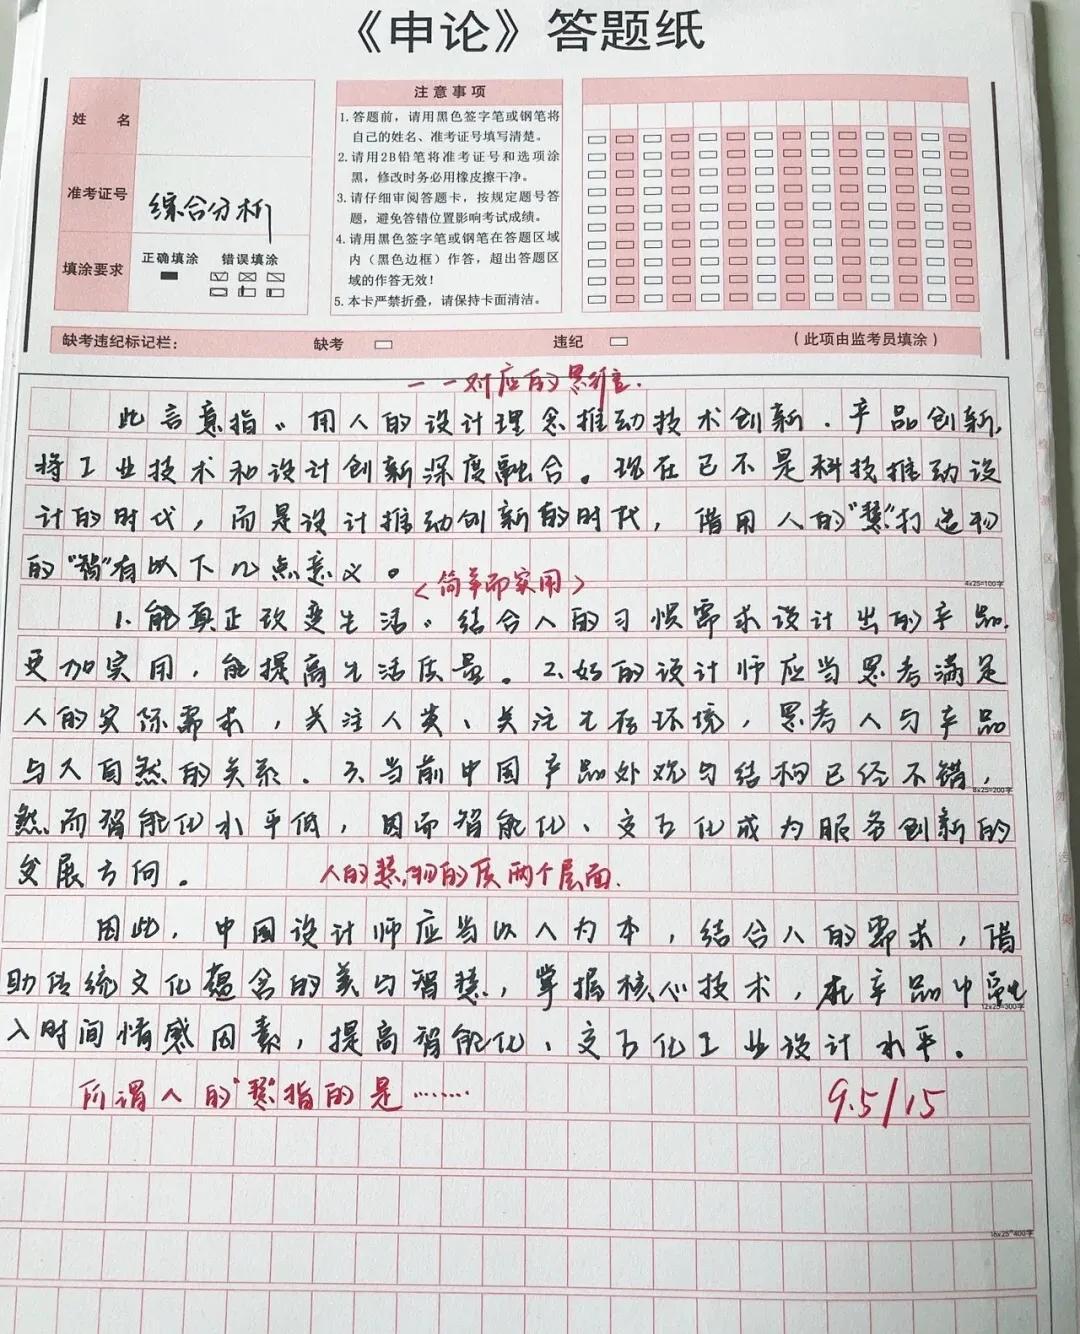 《申论》答题纸
姓 名
准考证号
综合分析
填涂要求
正确填涂 错误填涂
注意事项
1.答题前，请用黑色签字笔或钢笔将
自己的姓名、准考证号填写清楚。
2.请用2B铅笔将准考证号和选项涂
黑，修改时务必用橡皮擦干净。
3.请仔细审阅答题卡，按规定题号答
题，避免答错位置影响考试成绩。
4.请用黑色签字笔或钢笔在答题区域
内（黑色边框）作答，超出答题区
域的作答无效！
5.本卡严禁折叠，请保持卡面清洁。
缺考违纪标记栏： 缺考 违纪 （此项由监考员填涂）
一一对应的思维.
此言意指。用人的设计理念推动技术创新．产品创新,
将工业技术和设计创新深度融合。现在已不是科技推动设
计的时代，而是设计推动创新的时代，借用人的"慧"打造物
的"智"有以下几点意义。
4x25=100字
<简单而实用>
1.能真正改变生活。结合人的习惯需求设计出的产品.
更加实用，能提高生活质量。2.好的设计师应当思考满足
人的实际需求，关注人类、关注生存环境，思考人与产品
与大自然的关系．3.当前中国产品外观与结构已经不错，
8x25=200字
然而智能化水平低，因而智能化、交互化成为服务创新的
发展方向。
人的慧,物的质两个层面.
因此，中国设计师应当以人为本，结合人的需求，借
助传统文化蕴含的美与智慧，掌握核心技术，在产品中融
12x25=300字
入时间情感因素，提高智能化、交互化工业设计水平。
所谓人的"慧"指的是……
9.5/15
16x25=400字